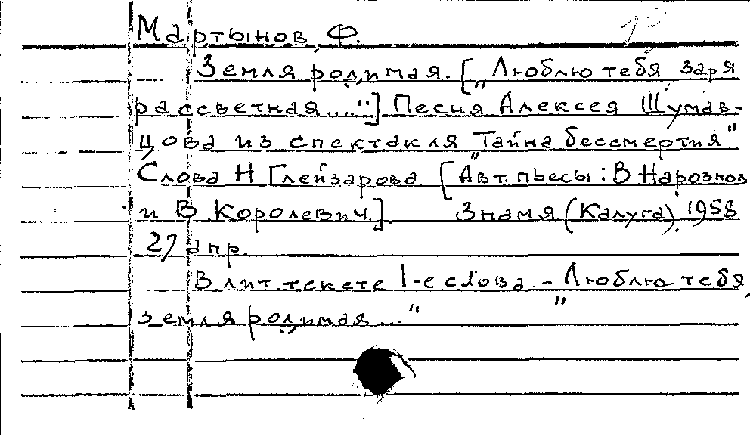 Мартынов, Ф.
Земля родимая. [„Люблю тебя заря
рассветная...."] Песня Алексея Шумав-
цова из спектакля „Тайна бессмертия"
Слова Н Глейзарова [Авт. пьесы: В Нарознов
и В Королевич]. Знамя (Калуга), 1958
27 апр.
В лит. тексте 1-е слова – „Люблю тебя,
земля родимая..."